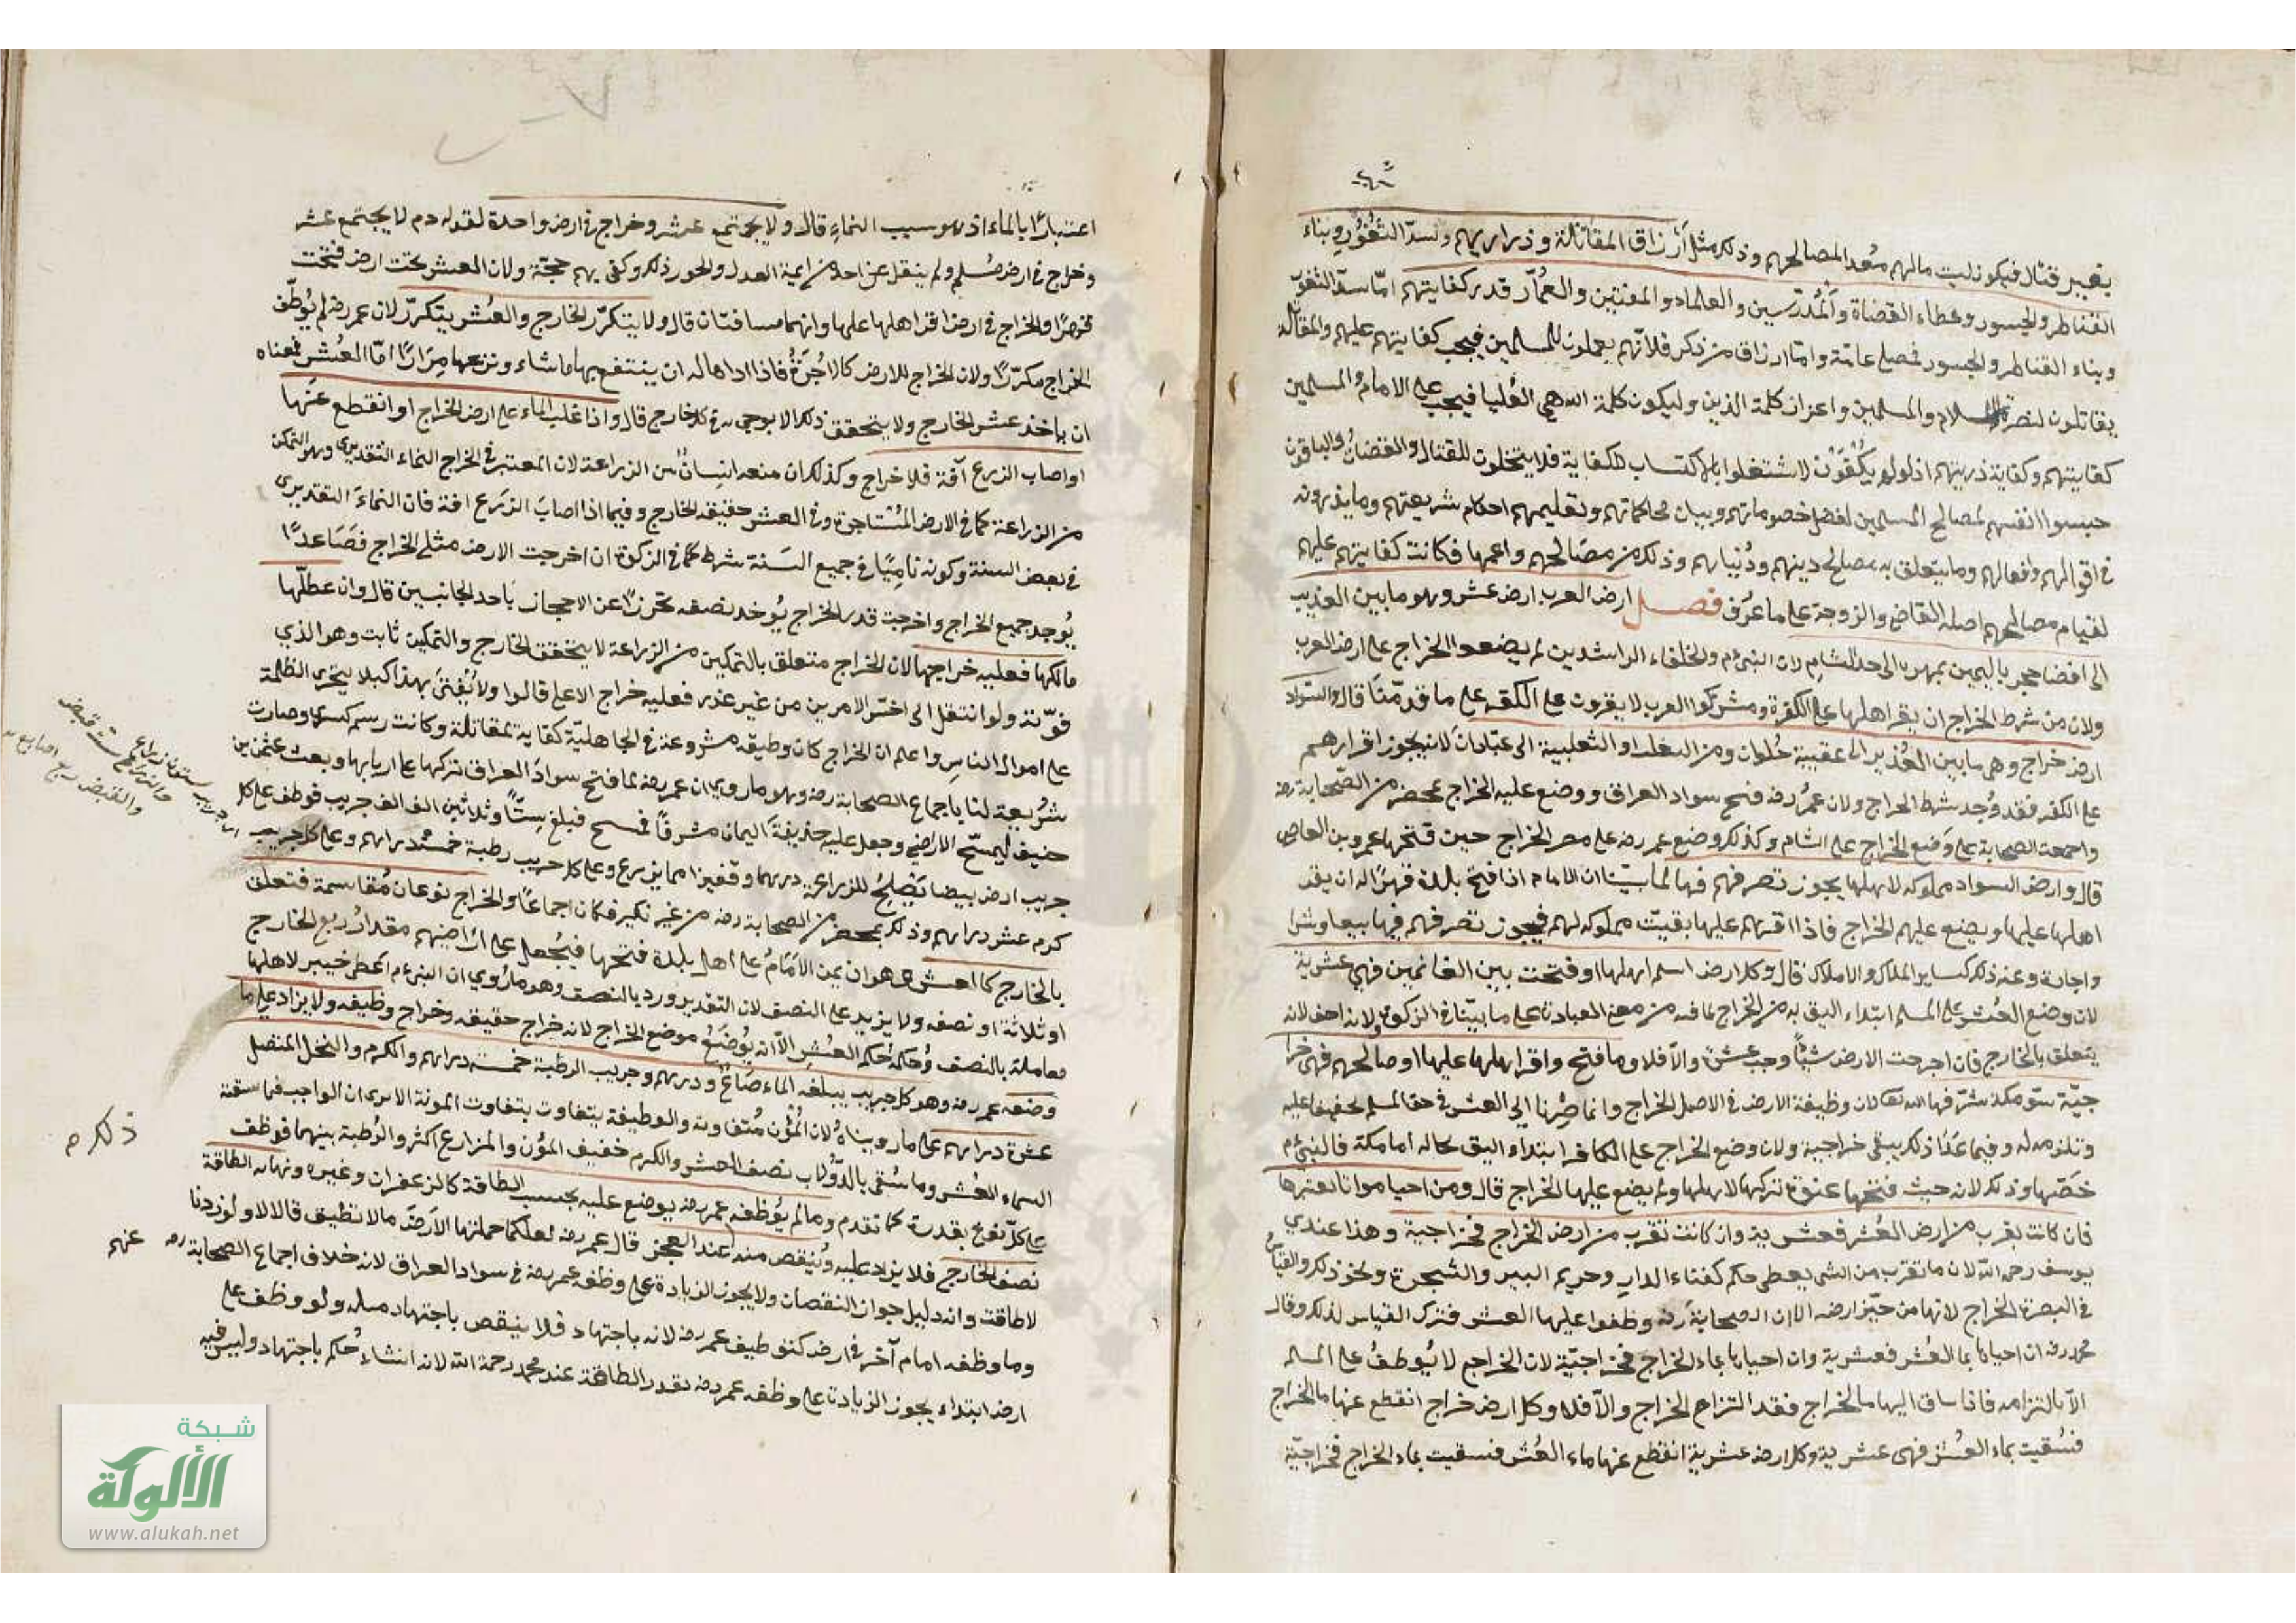 بغير قتال فيكون لبيت مالهم معد المصالحهم وذلك مثل أرزاق المقاتلة وذراريهم وسدّ الثُغُور وبناء
القناطر والجسور وعطاء القضاة والمُدرّسين والعلماء والمفتيين والعُمّار قدر كفايتهم امّا سدّ الثغور
وبناء القناطر والجسور عامّة وامّا ارزاق من ذكر فلانّهم يعملون للمسلمين فيجب كفايتهم عليهم والمقاتلة
يقاتلون لنصرة والمسلمين واعزاز كلمة الدين وليكون كلمة الله هي العُليا فيجب على الامام والمسلمين
كفايتهم وكفاية ذريتهم اذ لو لم يُكْفَوْن لاشتغلوا بالاكتساب للكفاية فلا يتخلون للقتال والقضاة والباقون
حبسوا انفسهم لمصالح المسلمين لفصل خصوماتهم وبيان محاكماتهم وتعليمهم احكام شريعتهم وما يذرونه
في اقوالهم وافعالهم وما يتعلق به مصالح دينهم ودُنياهم وذلك من مصالحهم واعمها فكانت كفايتهم عليهم
لقيام مصالحهم اصله القاضي والزوجة على ما عرف فصل ارض العرب ارض عشر وهو ما بين العذيب
الى اقصا حجر باليمين بمهرة الى حد الشام لان النبي م والخلفاء الراشدين لم يضعوا الخراج على ارض العرب
ولان من شرط الخراج ان يقر اهلها على الكفر ومشركوا العرب لا يقرون على الكفر على ما قدمنا قال والسواد
ارض خراج وهى ما بين العُذير الى عقيبة حُلوان ومن او الثعلبية الى عبّادان لانه يجوز اقرارهم
على الكفر فقد وُجد شرط الخراج ولان عمر رضه فتح سواد العراق ووضع عليه الخراج بمحضر من الصّحابة رضه
واجمعت الصحابة على وَضع الخراج على الشام وكذلك وضع عمر رضه على مصر الخراج حين فتحها عمرو بن العاص
قال وارض السواد مملوكة لاهلها يجوز تصرفهم فيها لما بيّنا ان الامام اذا فتح بلدة قهرًا له ان يقر
اهلها عليها ويضع عليهم الخراج فاذا اقرهم عليها بقيت مملوكة لهم فيجوز تصرفهم فيها بيعا وشرا
واجارة وعند ذلك كساير الملاك والاملاك قال وكل ارض اسلم اهلها او فتحت بين الغانمين فهى عشرية
لان وضع العُشر على المسلم ابتداء اليق به من الخراج لما فيه من معنى العبادة على ما بيّنا في الزكوة ولانه اخف لانه
يتعلق بالخارج فان اخرجت الارض شيئًا وجب عشره والّا فلا وما فتح واقر اهلها عليها او صالحهم فهى خرا
جيّة سوى مكة شرّفها الله تعا لان وظيفة الارض في الاصل الخراج وانما صِرنا الى العشر في حق المسلم تخفيفا عليه
وفيما عدا ذلك يبقى خراجية ولان وضع الخراج على الكافر ابتداء اليق بحاله اما مكة فالنبي م
خصّها وذلك لانه حيث فتحها عنوة تركها لاهلها ولم يضع عليها الخراج قال ومن احيا مواتا يعتبرها
فان كانت بقرب من ارض العُشر فعشرية وان كانت تقرب من ارض الخراج فخراجية وهذا عند ابي
يوسف رحمه الله لان ما تقرب من الشى يعطى حكمه كفناء الدار وحريم البير والشجرة ونحو ذلك والقياس
في البصرة الخراج لانها من حيّز ارضه الا ان الصحابة رضه وظفوا عليها العشر فترك القياس لذلك وقال
محمد رضه ان احياها بما العُشر فعشرية وان احياها بماء الخراج فخراجيّة لان الخراج لا يُوظفُ على المسلم
الّا بالتزامه فاذا ساق اليها ما الخراج فقد التزام الخراج والّا فلا وكل ارض خراج انقطع عنها ما الخراج
فسُقيت بماء العُشر فهى عشرية وكل ارض عشرية انقطع عنها ماء العُشر فسقيت بماء الخراج فخراجيّة
اعتبارًا بالماء اذ هو سبب النماء قال ولا يجتمع عشر وخراج في ارض واحدة لقوله م لا يجتمع عشر
وخراج في ارض مُسلم ولم ينقل عن احد من ايمة العدل والجور ذلك وكفى بهم حجّة ولان العشر تحت ارض فتحت
قهرًا والخراج في ارض اقر اهلها عليها وانهما متنافيتان قال ولا يتكرّر الخارج والعُشر يتكرّر لان عمر رضه لم يُوظّف
الخراج مكرّرًا ولان الخراج للارض كالاُجرَةُ فاذا اداها له ان ينتفع بها ما شاء ونزعها مِرَارًا امّا العُشر فمعناه
ان ياخذ عشر الخارج ولا يتحقق ذلك الا بوجوبه في كل خارج قال واذا غلب الماء على ارض الخراج او انقطع عنها
او اصاب الزرع آفة فلا خراج وكذلك ان منعه انسانٌ من الزراعة لان المعتبر في الخراج النماء التقديري وهو التمكن
من الزراعة كما في الارض المُستاجرة وفي العشر حقيقة الخارج وفيما اذا اصاب الزرع افة فان النماء التقديري
في بعض السنة وكونه نامِيًا في جميع السَنة شرط كما في الزكوة ان اخرجت الارض مثلى الخراج فصَاعدًا
يُوجد جميع الخراج واخرجت قدر الخراج يُوخد نصفه تحرزًا عن الاحجاز باحد الجانبين قال وان عطلّها
مالكها فعليه خراجها لان الخراج متعلق بالتمكين من الزراعة لا يتحقق الخارج والتمكين ثابت وهو الذي
فوّته ولو انتقل الى اخسّ الامرين من غير عذر فعليه خراج الاعلى قالوا ولا يُفتىَ بهذا كيلا يتجرى الظلمة
على اموال الناس واعلم ان الخراج كان وظيفة مشروعة في الجاهليّة كفاية لمقاتلة وكانت رسم كسرى وصارت
شريعة لنا باجماع الصحابة رضه وهو ما روى ان عمر رضه لما فتح سوادَ العراق تركها على اربابها وبعث عثمن بن
حنيف ليمسّح الاراضي وجعل عليه حذيفةَ اليمان مشرفًا فمسح فبلغ سِتًّا وثلاثين الف الف جريب فوظف على كل
جريب ارض بيضا يَصْلِحُ للزراعة درهما وقفيزا مما يزرع وعلى كل جريب رطبة خمسةُ دراهم وعلى كل جريب
كرم عشر دراهم وذلك بمحضر من الصحابة رضه من غير نكير فكان اجماعًا والخراج نوعان مُقاسمة فتعلق
بالخارج كالعشر وهو ان يمن الاَمَامُ على اهل بلدة فتحها فيُجعل على اراضيهم مقدار ربع الخارج
او ثلاثة او نصفه ولا يزيد على النصف لان التقدير ورد بالنصف وهو ما رُوي ان النبي م اعطى خيبر لاهلها
معاملة بالنصف وُحكمه حُكم العُشر الّا انه يُوضَعُ موضع الخراج لانه خراج حقيقة وخراج وظيفه ولا يزاد على ما
وضعه عمر رضه وهو كل جريب يبلغه الماء صَاعٌ ودرهم وجريب الرطبة خمسة دراهم والكرم والنخل المتصل
عشرة دراهم على ما رويناهُ لان المُؤن مُتفاوتة والوظيفة يتفاوت بتفاوت المونة الا يرى ان الواجب فيما سقته
السماء العُشر وما سُقى بالدُولاب نصف العشر والكرم خفيف المؤن والمزارع اكثر والرُطبة بينهما فوظف
على كلّ نوع بقدره كما تقدم وما لم يُوظفه عمر رضه يوضع عليه بحسب الطاقة كالزعفران وغيره ونهاية الطاقة
نصف الخارج فلا يزاد عليه ويُنقص منه عند العجز قال عمر رضه لعلكما حملتما الارضَ ما لا تطيق قالا لا ولو زدنا
لاطاقت وانه دليل جواز النقصان ولا يجوز الزيادة على وظفه عمر رضه في سواد العراق لانه خلاف اجماع الصحابة رضه عنهم
وما وظفه امام آخر في ارض كتوظيف عمر رضه لانه باجتهاد فلا ينقص باجتهاد مثله ولو وظف على
ارض ابتداء يجوز الزيادة على وظفه عمر رضه بقدر الطاقة عند محمد رحمة الله لانه انشاء حُكم باجتهاد وليس فيه
ذلك م
شبكة
الألوكة
www.alukah.net